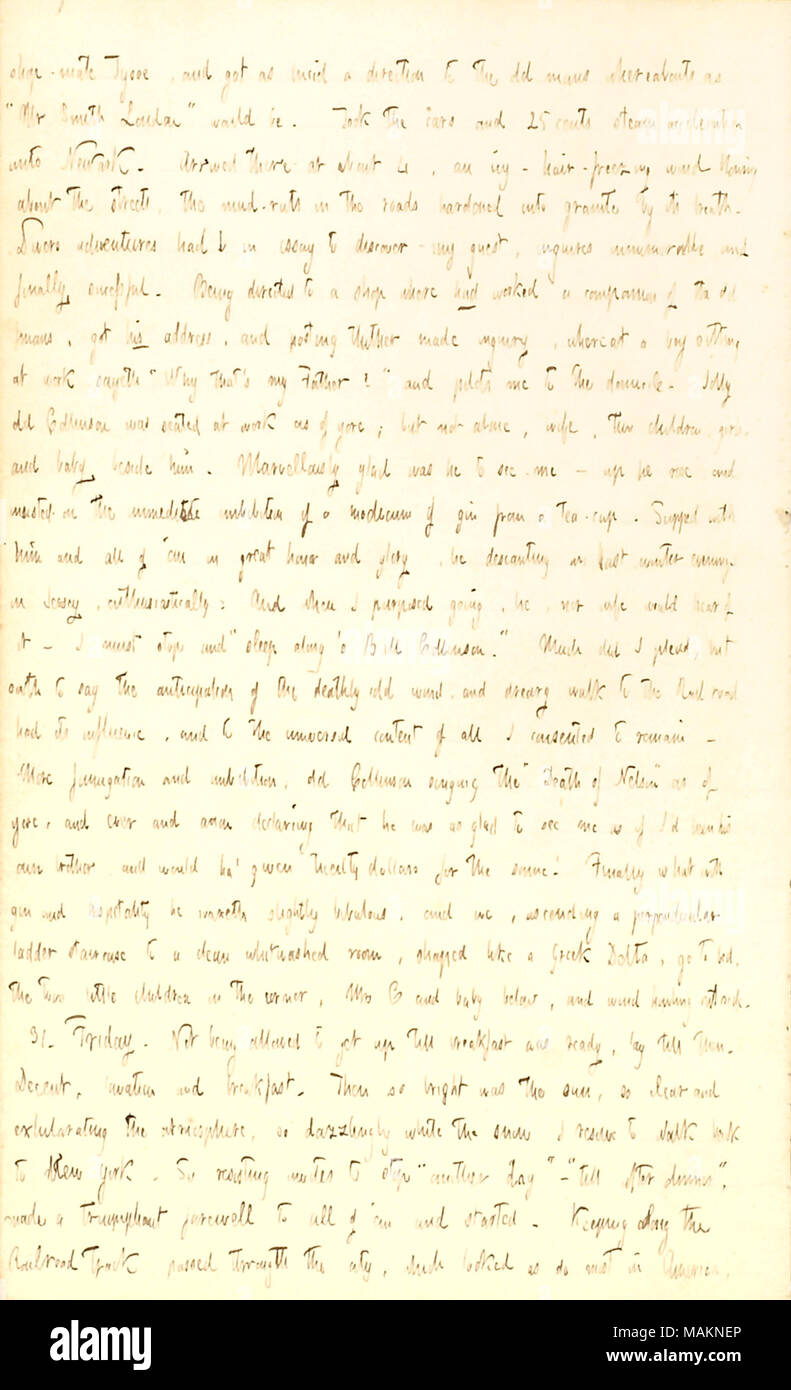 shop-mate Tysoe, and got as lucid a direction to the old mans whereabouts as
"Mr Smith London" would be. Took the Cars and 25 cents steam acceleration
unto Newark. Arrived there at about 4, an icy-hair-freezing wind
about the streets, the mud-ruts in the roads hardened into granite by its breath.
Divers adventures had I in essay to discover my quest, inquires innumerable and
finally successful. Being directed to a shop where had worked a companion of the old
mans, got his address, and posting thither made inquiry, whereat a boy sitting
at work sayeth "Why that's my Father!" and pilots me to the domicile. Jolly
old Bellinson was seated at work as of yore; but not alone, wife, two children,
and baby beside him. Marvellously glad was he to see me – up he rose and
insisted on the immediate imbibition of a modicum of gin from a tea-cup. Supped with
him and all of 'em in great honor and glory, he descanting on last winter evenings
in Jersey, enthusiastically: And when I purposed going, he, nor wife would hear of
it – I must stop and "sleep along 'o Bill Bellinson." Much did I plead, but
sooth to say the anticipation of the deathly cold wind, and dreary walk to the Rail road
had its influence, and to the universal content of all I consented to remain –
More fumigation and imbibition, old Bellinson singing the "Death of Nelson" as of
yore, and ever and anon declaring that he was as glad to see me as if I'd been his
own brother and would ha' given twenty dollars for the same! Finally what with
gin and hospitality he waxeth slightly bibulous, and we, ascending a perpendicular
ladder staircase to a clean whitewashed room, shaped like a Greek Delta, go to bed,
the two little children in the corner, Mrs B and baby below, and wind howling
31. Friday. Not being allowed to get up till breakfast was ready, lay till then.
Descent, lavation and breakfast. Then so bright was the sun, so clear and
exhilarating the atmosphere, so dazzlingly white the snow I resolve to walk back
to New York. So resisting invites to stop "another day" – "till after dinner",
made a triumphant farewell to all of 'em and started. Keeping along the
Railroad Track passed through the city, which looked as do most in America,
alamy
Image ID: MAKNEP
www.alamy.com